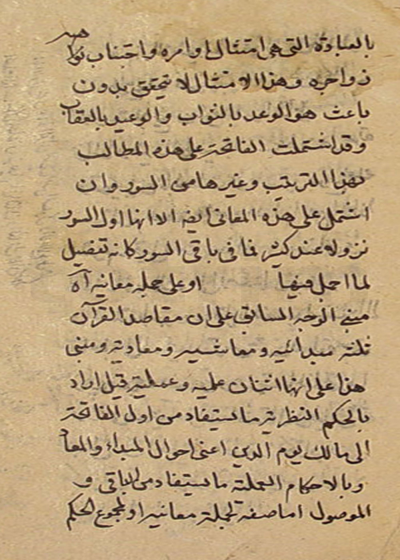 بالعبادة التى هى امتثال اوامره واجتناب نواهيه
زواجره وهذا الامتثال لا يتحقق بدون
باعث هو الوعد بالثواب والوعيد بالعقاب
وقد اشتملت الفاتحة على هذه المطالب
بهذا الترتيب وغيرها من السور وان
اشتمل على هذه المعانى ايضا الا انها اول السور
نزولا عند كثير فما فى باقى السور كانه تفصيل
لما اجمل فيها او على جملة معانيه آه
مبنى الوجه السابق على ان مقاصد القرآن
ثلثة مبدائية ومعاشية ومعادية ومبنى
هذا على انها اثنان علمية وعملية قيل اراد
بالحكم النظرية ما يستفاد من اول الفاتحة
الى مالك يوم الدين اعنى احوال المبداء والمعاد
وبالاحكام العملية ما يستفاد من الباقى و
الموصول اما صفة لجملة معانيه او لمجموع الحكم